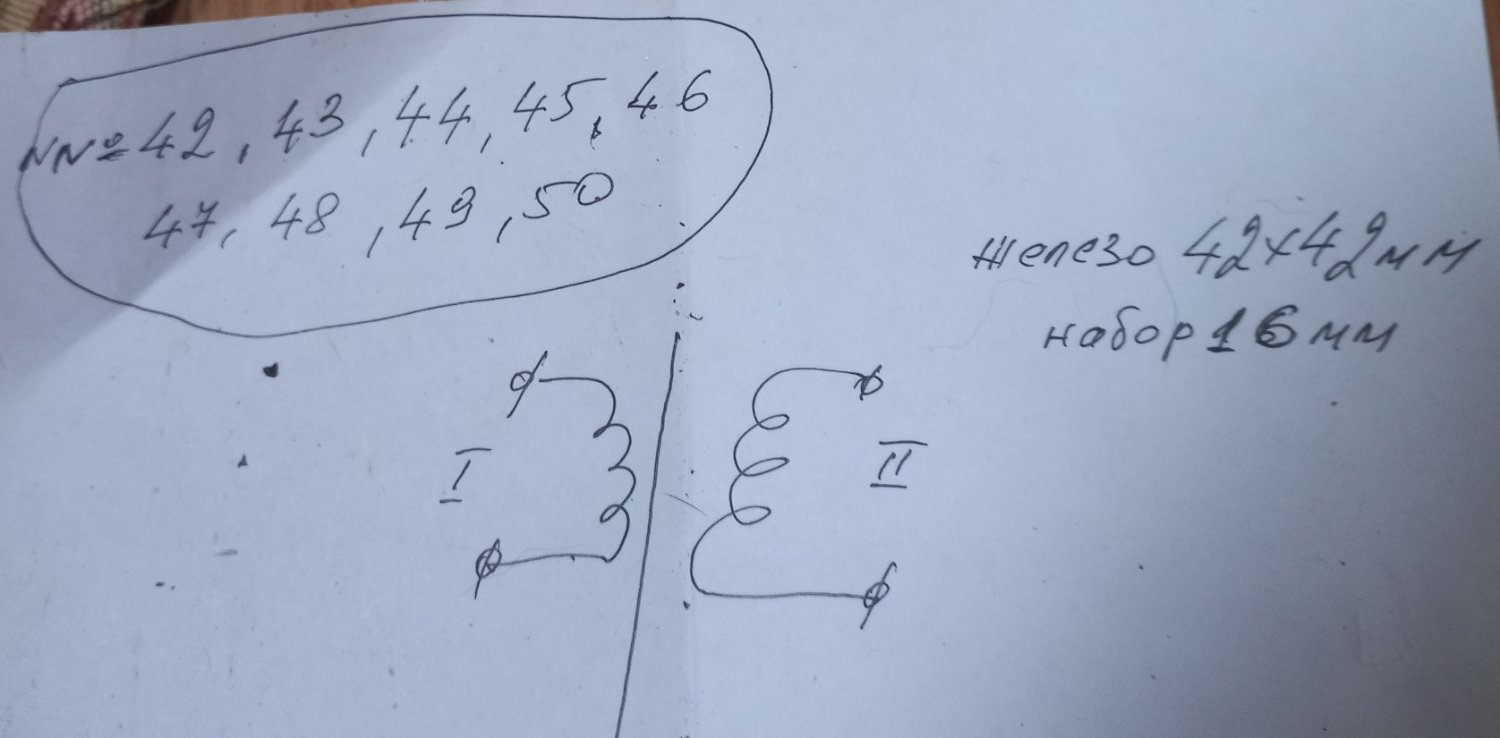 NN№ 42, 43, 44, 45, 46
47, 48, 49, 50
железо 42х42мм
набор 16 мм
I
II